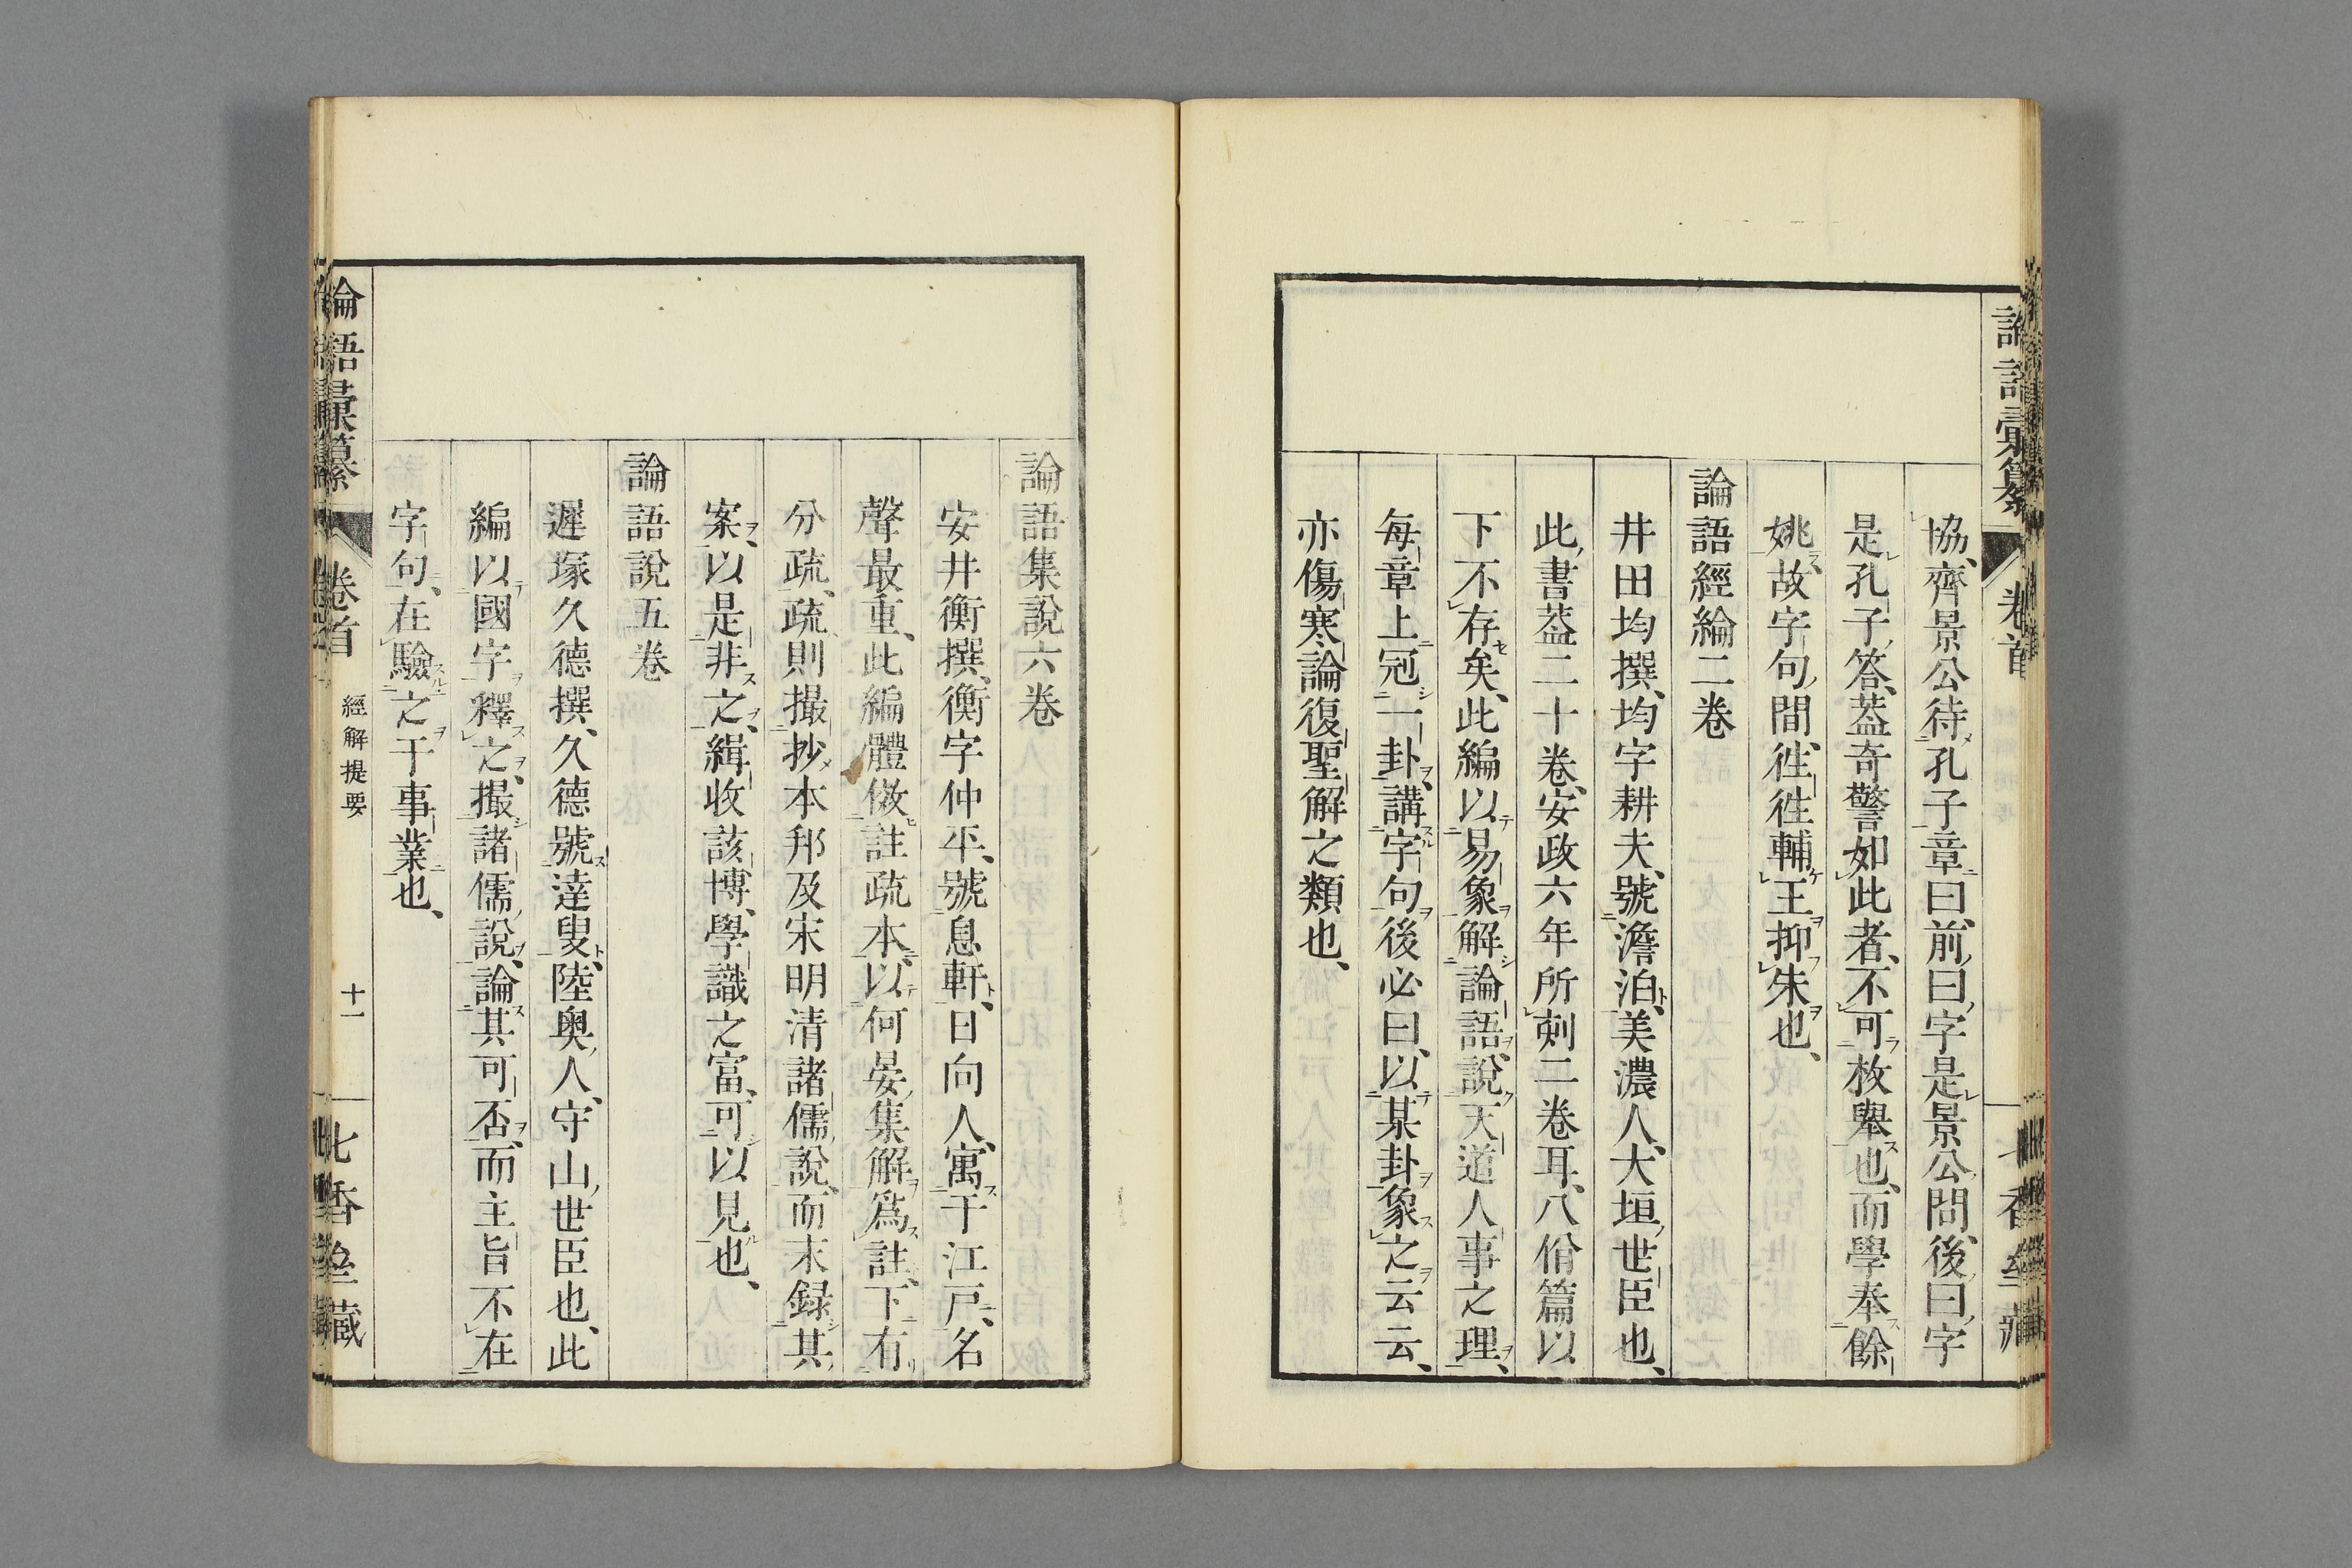 論語彙纂 卷首
協、齊景公待孔子章曰、前曰字是景公問、後曰字
是孔子答、蓋奇警如此者、不可枚舉也、而學奉餘
姚、故字句間徃徃輔王抑朱也、
論語經綸二卷
井田均撰、均字耕夫、號澹泊、美濃人、大垣世臣也、
此書蓋二十卷、安政六年所刻二卷耳、八佾篇以
下不存矣、此編以易象解論語、說天道人事之理、
每章上冠一卦、講字句後必曰、以某卦象之云云、
亦傷寒論復聖解之類也、
論語集說六卷
安井衡撰、衡字仲平、號息軒、日向人、寓于江戸、名
聲最重、此編體倣註疏本、以何晏集解爲註、下有
分疏、疏則撮抄本邦及宋明清諸儒說、而末録其
案、以是非之、緝收該博、學識之富、可以見也、
論語說五卷
遲塚久德撰、久德號達叟、陸奥人、守山世臣也、此
編以國字釋之、撮諸儒說、論其可否、而主旨不在
字句、在驗之于事業也、
論語彙纂 卷首 經解提要 十一